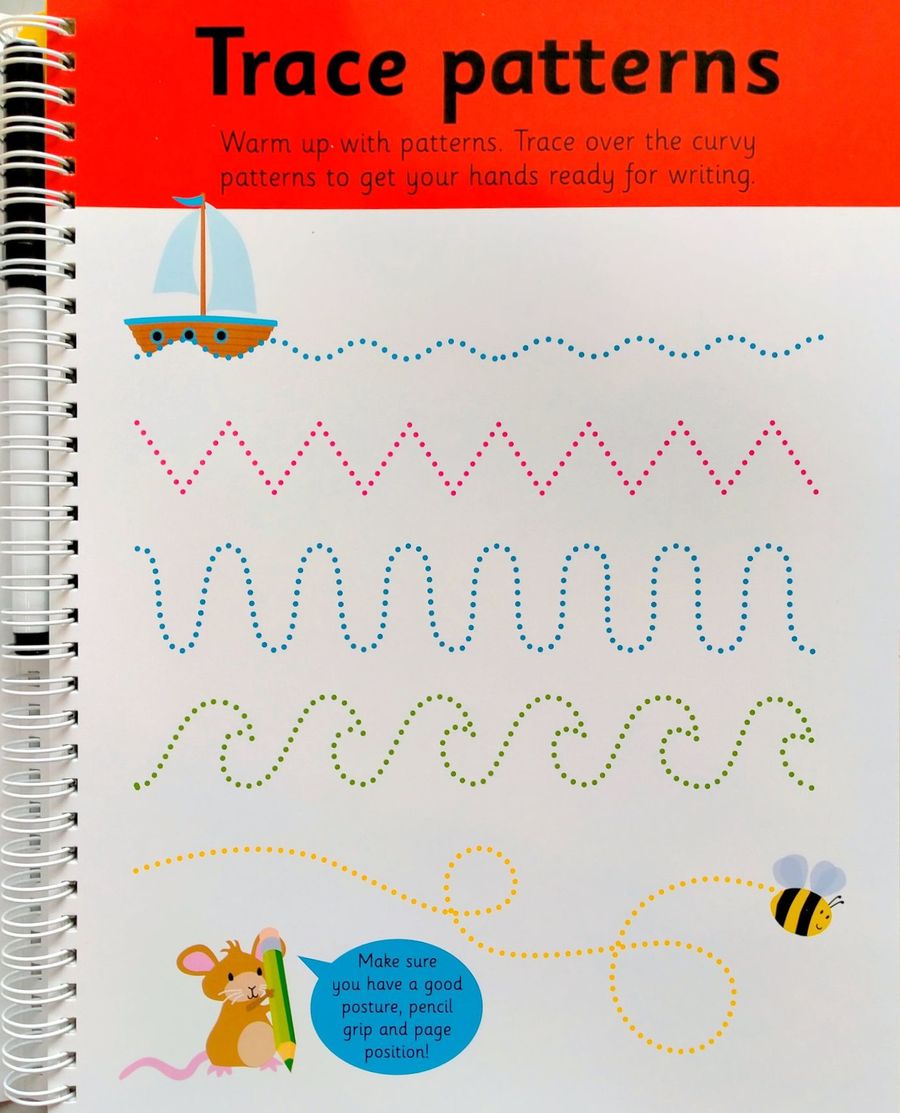 Trace patterns
Warm up with patterns. Trace over the curvy
patterns to get your hands ready for writing.
Make sure
you have a good
posture, pencil
grip and page
position!